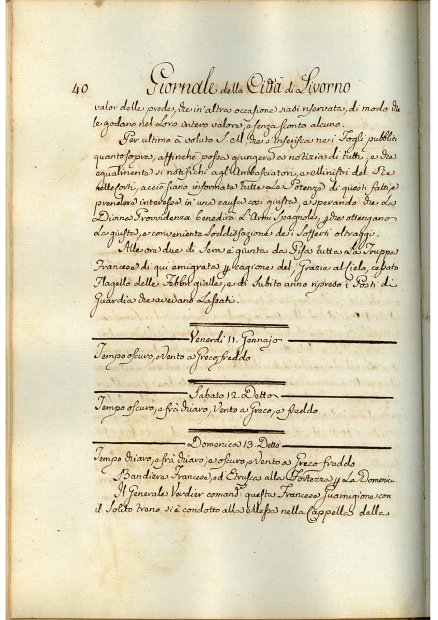 40
Giornale della Città di Livorno
valor delle prede, che in altra occasione siasi riservata, di modo che
le godano nel Loro intero valore, e senza sconto alcuno.
Per ultimo à voluto S. M. che s'inserisca nei Fogli pubblici
quanto sopra, affinchè possa giungere a notizia di tutti, e che
egualmente si notifichi agli Ambasciatori, e Ministri del Re
nelle Corti, acciò siano informate tutte le Potenze di questi fatti, e
prendere interesse in una causa così giusta, e sperando che La
Divina Provvidenza benedirà L'Armi Spagnole, che ottengano
La giusta, e conveniente Sodisfazione dei Sofferti oltraggi.
Alle ore due di Sera è giunta da Pisa tutta La Truppa
Francese di qui emigrata p cagione del, Grazie al Cielo, cessato
Flagello delle Febbri gialle, e di Subito anno ripreso i Posti di
Guardia che avevano Lassati.
Venerdì 11. Gennajo
Tempo oscuro, e Vento a Greco freddo
Sabato 12. Detto
Tempo oscuro, e frà chiaro, Vento a Greco, e freddo
Domenica 13. Detto
Tempo chiaro, e frà chiaro, e oscuro, e Vento a Greco freddo
Bandiera Francese, ed Etrusca alla Fortezza p La Domenica
Il Generale Verdier comand.e questa Francese Guarnigione con
il Solito treno si è condotto alla Messa nella Cappella della